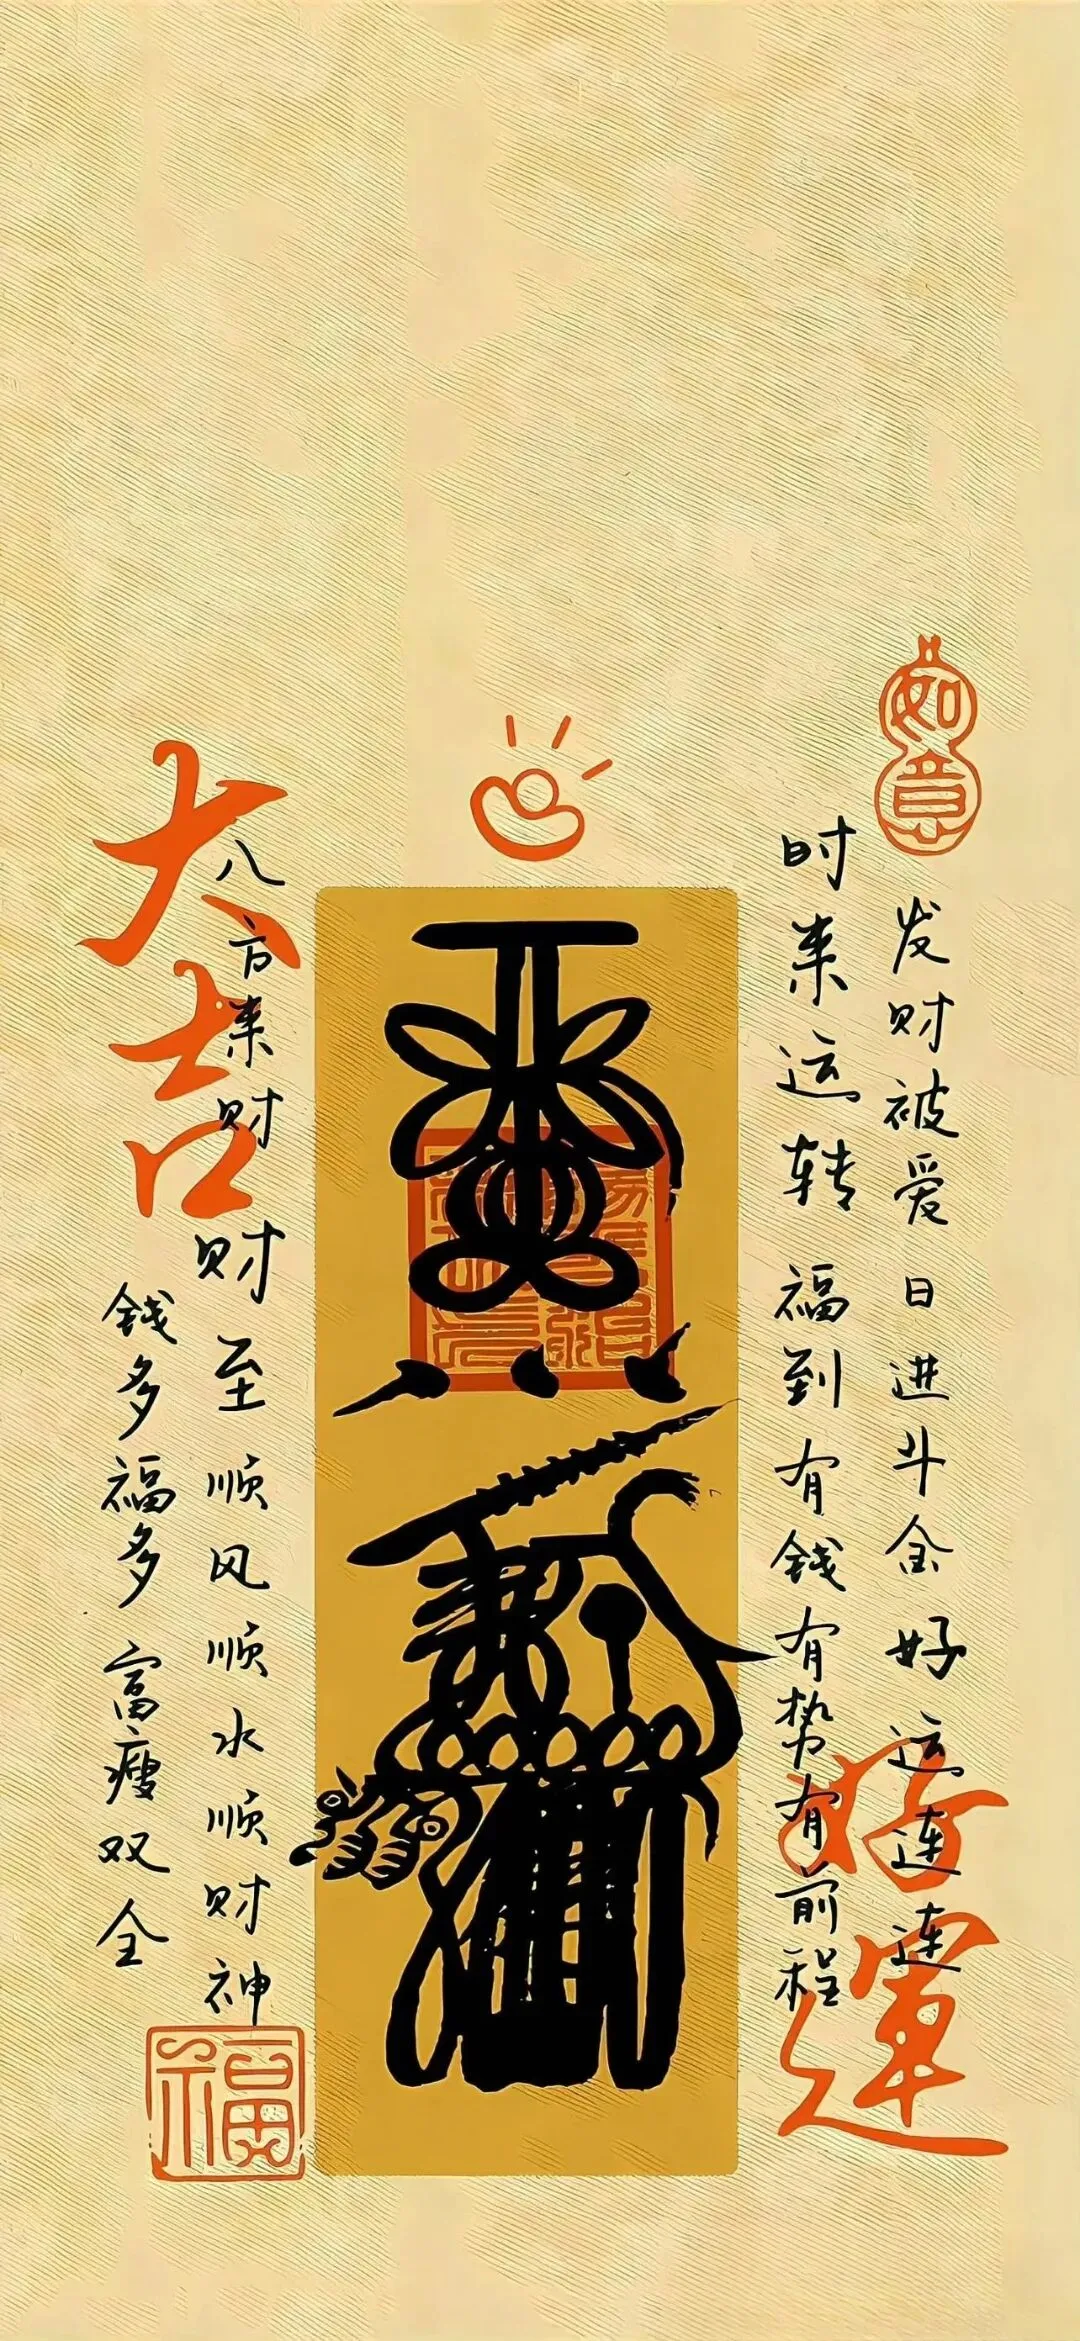 如意
发财被爱 日进斗金 好运连连
时来运转 福到 有钱有势有前程
好運
大吉
八方来财 财至 顺风顺水顺财神
钱多福多 富瘦双全
福